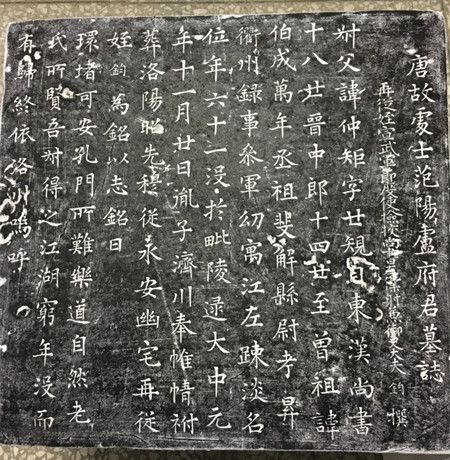 唐故處士范陽盧府君墓誌
再從姪宣武軍節度使檢校尚書僕射兼御史大夫鈞撰
叔父諱仲矩字廿規自東漢尚書
十八廿晉中郎十四廿至曾祖諱
伯成萬年丞祖斐解縣尉考昇
衢州錄事叅軍幼寓江左踈淡名
位年六十三沒於毗陵逯大中元
年十一月廿日胤子濟川奉帷幬祔
葬洛陽昭先穆從永安幽宅再從
姪鈞為銘以志銘曰
環堵可安孔門所難樂道自然老
氏所賢吾叔得之江湖窮年沒而
有歸終依洛川嗚呼